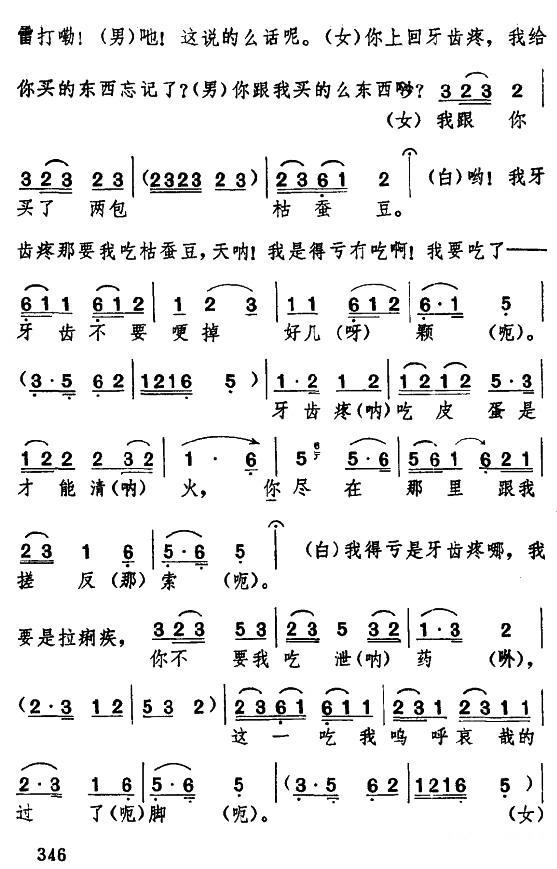 雷打嘞！(男)吔！这说的么话呢。(女)你上回牙齿疼，我给
你买的东西忘记了？(男)你跟我买的么东西吵？ 3 2 3 2 |
(女) 我跟 你
3 2 3 2 3 | (2323 2 3) | 2 3 6 1 2 | (白)哟！我牙
买了 两包 枯蚕 豆。
齿疼那要我吃枯蚕豆，天呐！我是得亏冇吃啊！我要吃了——
6 1 1 6 1 2 | 1 2 3 | 1 1 6 1 2 | 6·1 5 |
牙齿不要哽掉 好几(呀) 颗 (呃)。
(3·5 6 2 | 1216 5) | 1·2 1 2 | 1 2 1 2 5·3 |
牙齿疼(呐)吃 皮 蛋是
1 2 2 2 3 2 | 1· 6 | 5 6 5·6 | 5 6 1 6 2 1 |
才能清(呐) 火， 你尽 在 那里 跟我
2 3 1 6 | 5·6 5 | (白)我得亏是牙齿疼哪，我
搓 反(那)索 (呃)。
要是拉痢疾， 3 2 3 5 3 | 2 3 5 3 2 | 1·3 2 |
你不 要我 吃 泄(呐) 药 (吩)，
(2·3 1 2 | 5 3 2) | 2 3 6 1 6 1 1 | 2 3 1 2 3 1 1 |
这一吃我呜呼哀哉的
2·3 1 6 | 5·6 5 | (3·5 6 2 | 1216 5) |
过 了(呃)脚 (呃)。 (女)
346